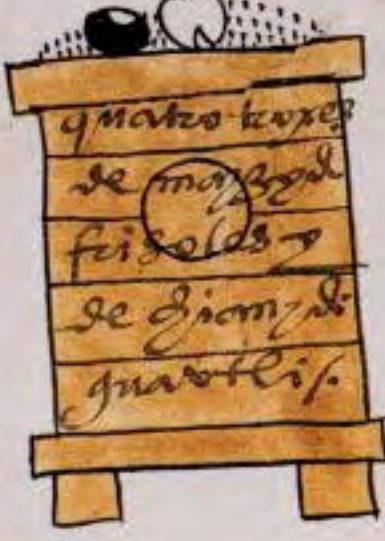 quatro troxes
de mayz y de
frisoles y
de chian y de
guavtli s.